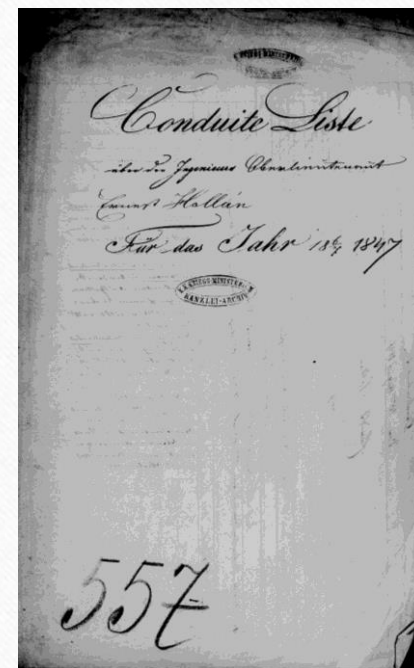 Conduite Liste
über den Ingenieur Oberlieutenant
Ernest Hollán
Für das Jahr 1847
K.K. KRIEGS-MINISTERIUM
KANZLEI-ARCHIV
557